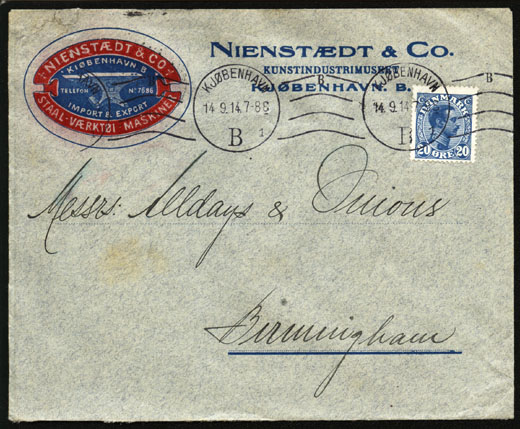 NIENSTÆDT & CO.
KJØBENHAVN B
TELEFON No 7686
IMPORT & EXPORT
STAAL-VÆRKTØI MASKINER
NIENSTÆDT & CO.
KUNSTINDUSTRIMUSEET
KJØBENHAVN. B.
KJØBENHAVN
14.9.14.7-8E
B
1
B
KJØBENHAVN
14.9.14
B
B
DANMARK
20 ØRE 20
Messrs: Alldays & Onions
Birmingham